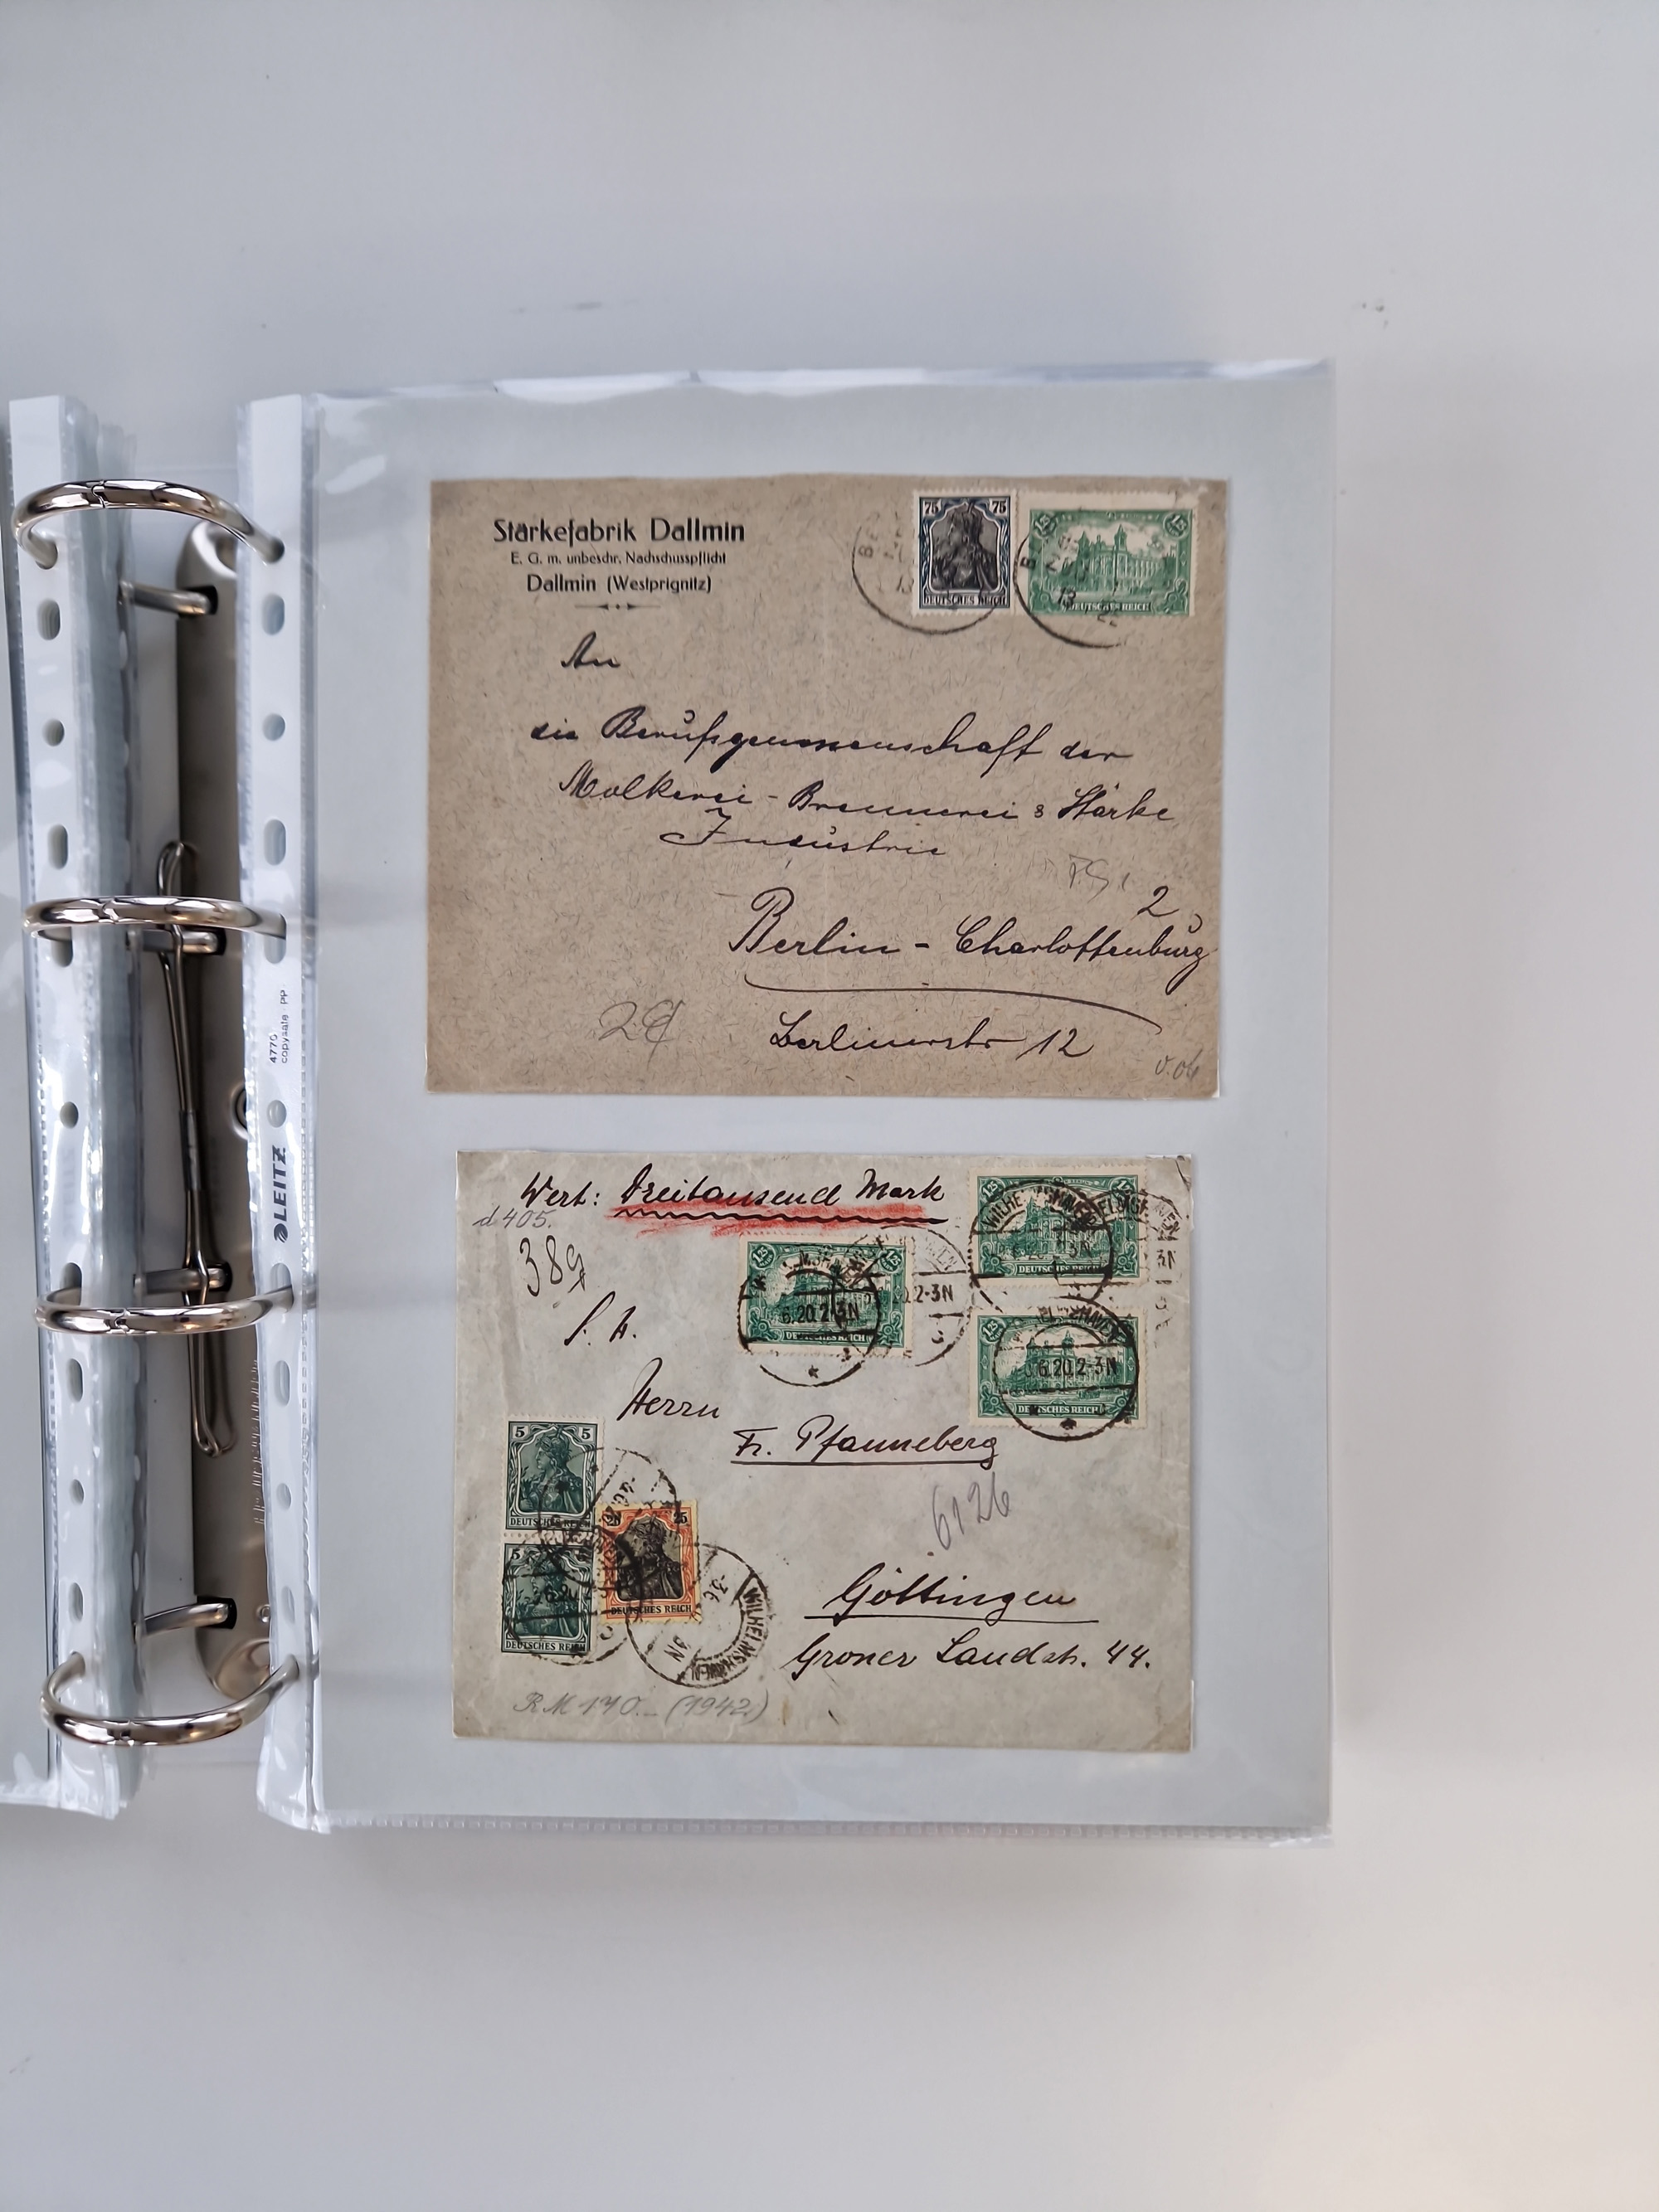 Stärkefabrik Dallmin
E. G. m. unbeschr. Nachschusspflicht
Dallmin (Westprignitz)
75 75
DEUTSCHES REICH
1,25 1,25
DEUTSCHES REICH
13
22
An
die Berufsgenossenschaft der
Molkerei - Brennerei & Stärke
Industrie
2
Berlin - Charlottenburg
Berlinerstr 12
4770
copysafe · PP
LEITZ
Wert: Dreitausend Mark
d 405.
38g
WILHELMSHAVEN
DEUTSCHES REICH
1,25 1,25
6.20.2-3N
DEUTSCHES REICH
2-3N
3N
1,25
6.20.2-3N
DEUTSCHES REICH
Herrn
Fr. Pfanneberg
5 5
DEUTSCHES REICH
25
DEUTSCHES REICH
5
DEUTSCHES REICH
WILHELMSHAVEN
6126
Göttingen
Groner Landstr. 44.
RM 170.- (1942)